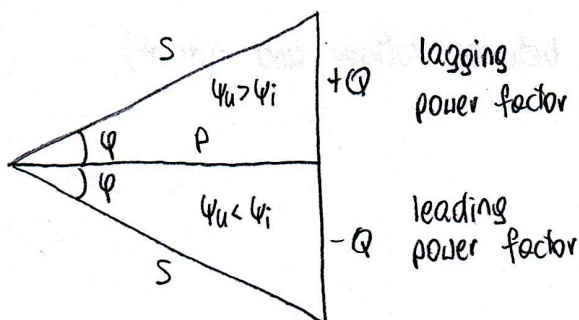 S
ψu>ψi
+Q
lagging
power factor
φ
P
φ
ψu<ψi
-Q
leading
power factor
S